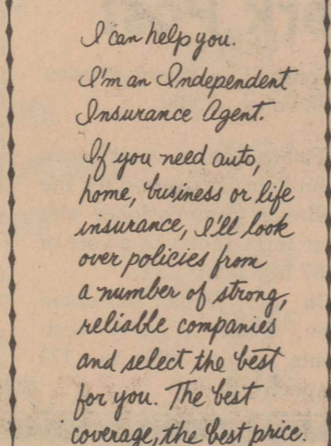 I can help you.
I'm an Independent
Insurance Agent.
If you need auto,
home, business or life
insurance, I'll look
over policies from
a number of strong,
reliable companies
and select the best
for you. The best
coverage, the best price.